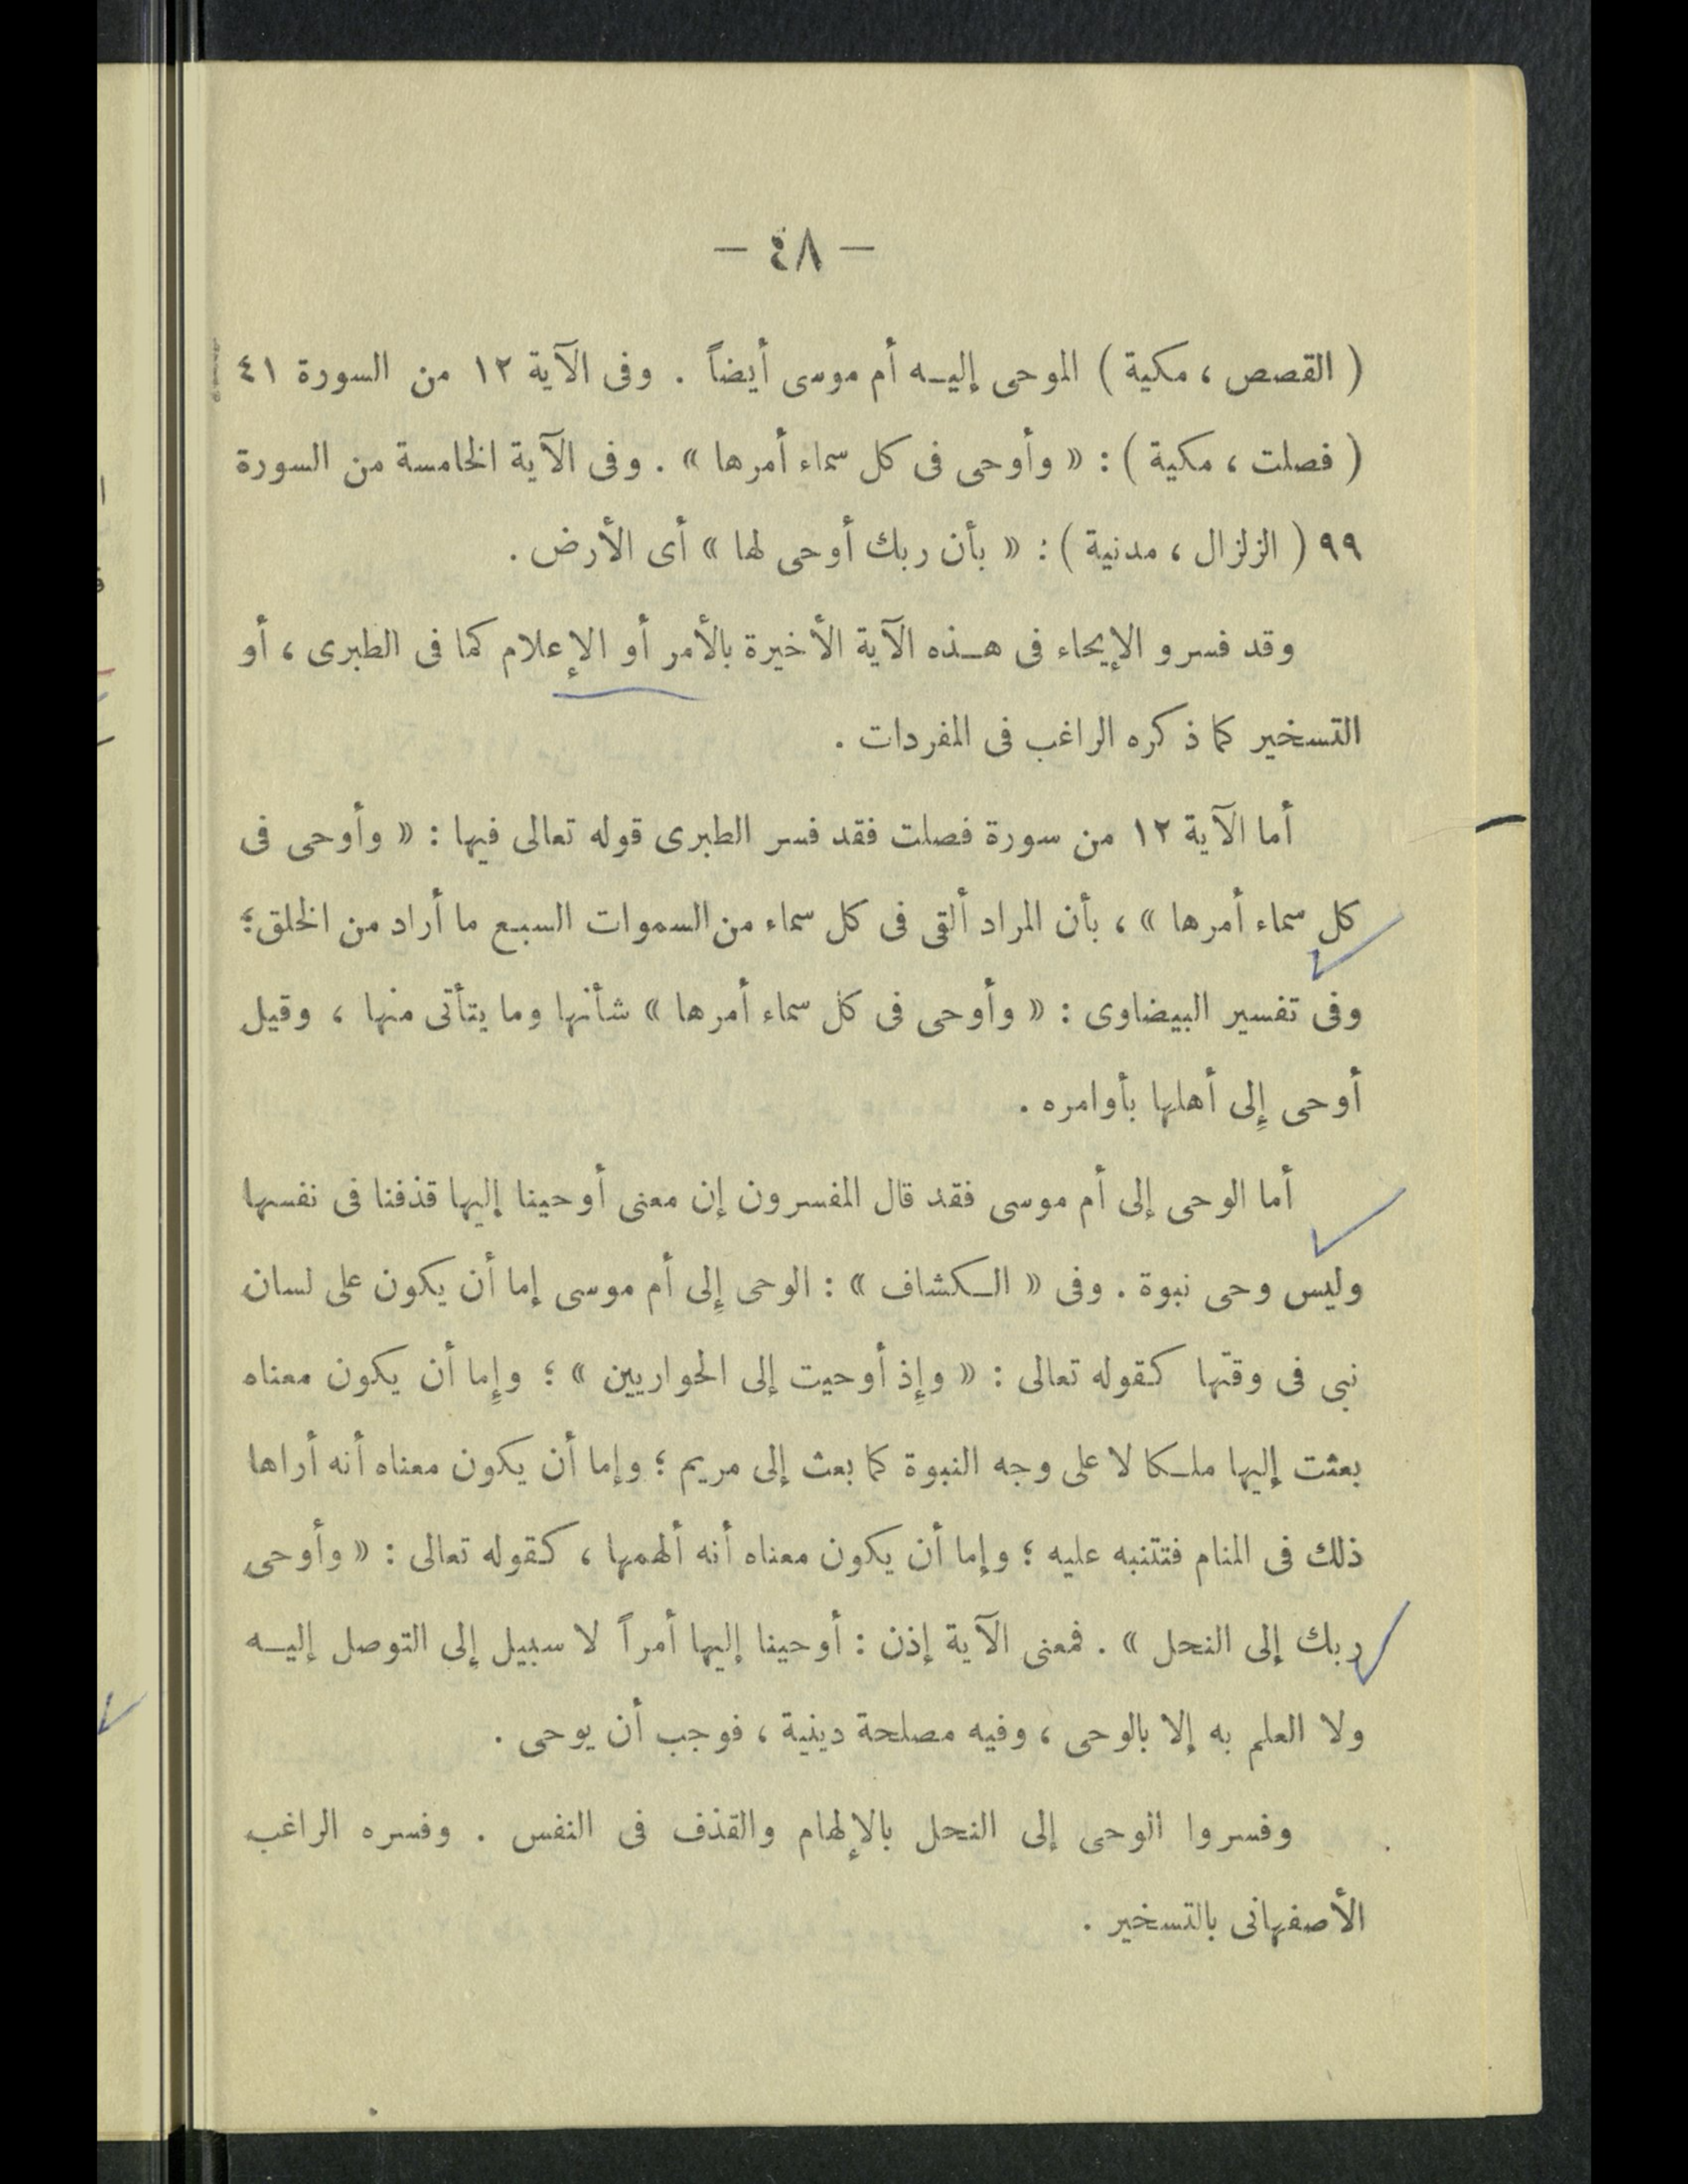 — ٤٨ —
( القصص ، مكية ) الموحى إليـه أم موسى أيضاً . وفى الآية ١٢ من السورة ٤١
( فصلت ، مكية ) : « وأوحى فى كل سماء أمرها » . وفى الآية الخامسة من السورة
٩٩ ( الزلزال ، مدنية ) : « بأن ربك أوحى لها » أى الأرض .
وقد فسرو الإيحاء فى هـذه الآية الأخيرة بالأمر أو الإعلام كما فى الطبرى ، أو
التسخير كما ذكره الراغب فى المفردات .
أما الآية ١٢ من سورة فصلت فقد فسر الطبرى قوله تعالى فيها : « وأوحى فى
كل سماء أمرها » ، بأن المراد ألقى فى كل سماء من السموات السبع ما أراد من الخلق ؛
وفى تفسير البيضاوى : « وأوحى فى كل سماء أمرها » شأنها وما يتأتى منها ، وقيل
أوحى إِلى أهلها بأوامره .
أما الوحى إلى أم موسى فقد قال المفسرون إن معنى أوحينا إليها قذفنا فى نفسها
وليس وحى نبوة . وفى « الـكشاف » : الوحى إِلى أم موسى إما أن يكون على لسان
نبى فى وقتها كقوله تعالى : « وإِذ أوحيت إلى الحواريين » ؛ وإِما أن يكون معناه
بعثت إليها ملـكا لا على وجه النبوة كما بعث إلى مريم ؛ وإما أن يكون معناه أنه أراها
ذلك فى المنام فتتنبه عليه ؛ وإما أن يكون معناه أنه ألهمها ، كقوله تعالى : « وأوحى
ربك إلى النحل » . فمعنى الآية إذن : أوحينا إليها أمراً لا سبيل إلى التوصل إليـه
ولا العلم به إلا بالوحى ، وفيه مصلحة دينية ، فوجب أن يوحى .
وفسروا الوحى إلى النحل بالإلهام والقذف فى النفس . وفسره الراغب
الأصفهانى بالتسخير .